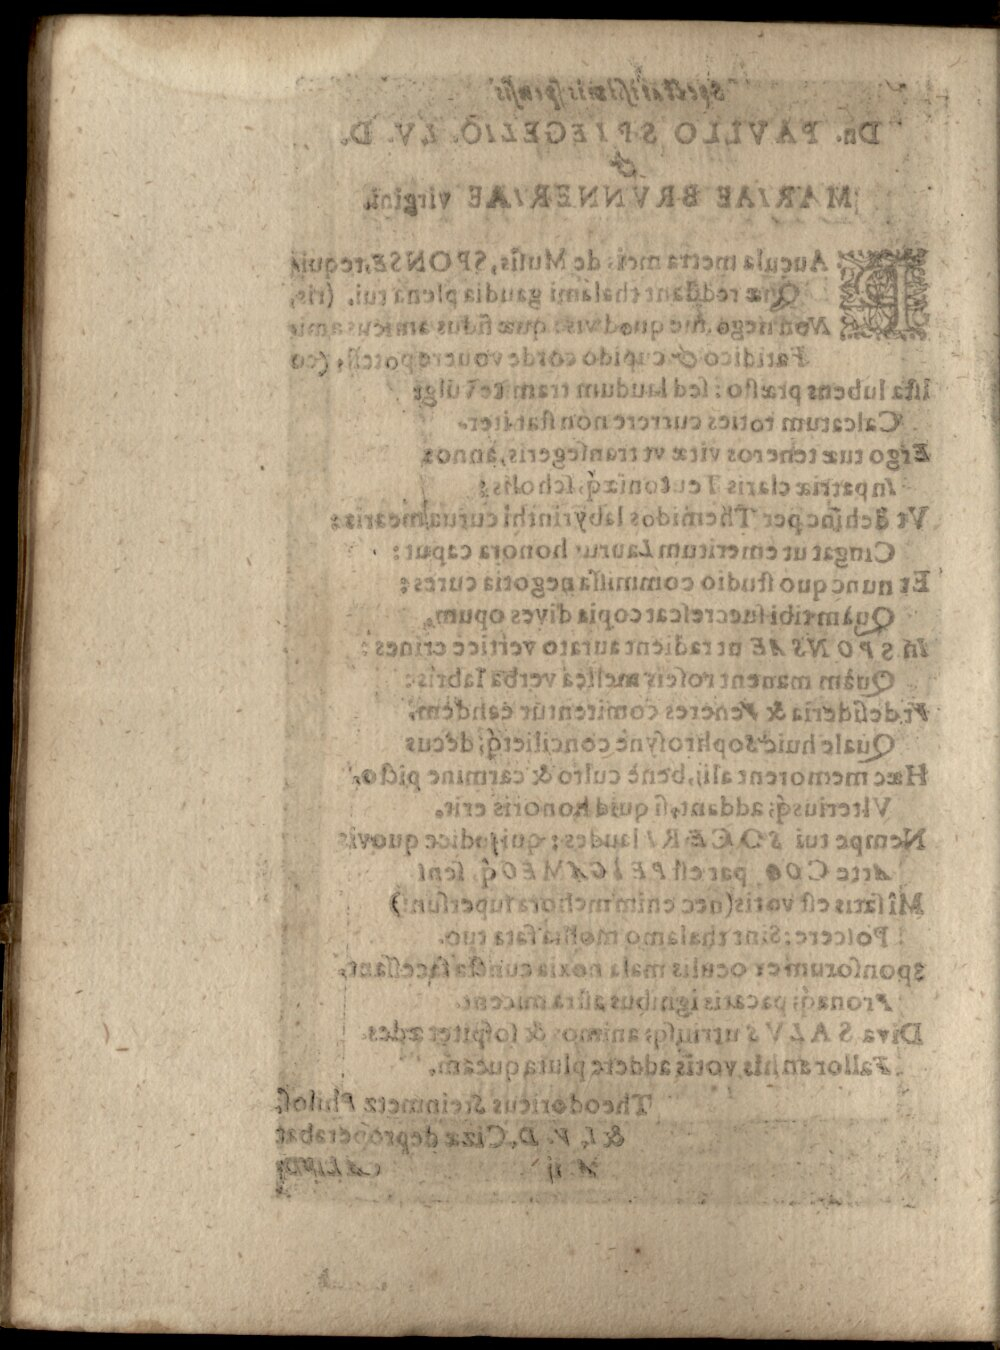 Spectatissimis sponsis
Dn. PAVLLO SPIEGELIO. I.V. D.
&
MARIAE BRVNNERIAE virgini.
PAucula metra mei de Musis, SPONSE, requiris,
Quæ reddant thalami gaudia plena tui.
Non nego, me quod vis: quæ fidus amicus amico
Fatidico & cupido corde vovere potest,
Ista lubens præsto: sed laudum tramite vulgi
Calcatum toties currere non stat iter.
Ergo tuæ teneros vitæ vt transegeris, annos
In patriæ claris Teutoniæq́; scholis;
Vt dehinc per Themidos labyrinthi curua mearis:
Cingat ut emeritum Laurus honora caput:
Et nunc quo studio commissa negotia cures;
Quàm tibi succrescat copia dives opum.
In SPONSAE ut radient aurato vertice crines:
Quàm manent roseis mellea verba labris:
Vt desideria & Veneres comitentur eandem,
Quale huic Sophrosyne conciliet q́; decus
Hæc memorent alij, benè culto & carmine picto,
Vlteriusq́; addant, si quid honoris erit.
Nempe tui SOCERI laudes; qui judice quovis
Arte COO par est PELIGNAMEO q́
Mî satis est votis (nec enim meliora supersunt)
Poscere: Sint thalamo mollia fata tuo.
Sponsorum ex oculis mala noxia cuncta facessant,
Pronaq́; pacatis ignibus astra micent.
Diva SALVS utriusq́; animo & sospitet ædes.
Fallor an his votis addere plura queam.
Theodoricus Steinmetz Philos.
& I. V. D. Cizæ deproperabat
A ij
ALIVD